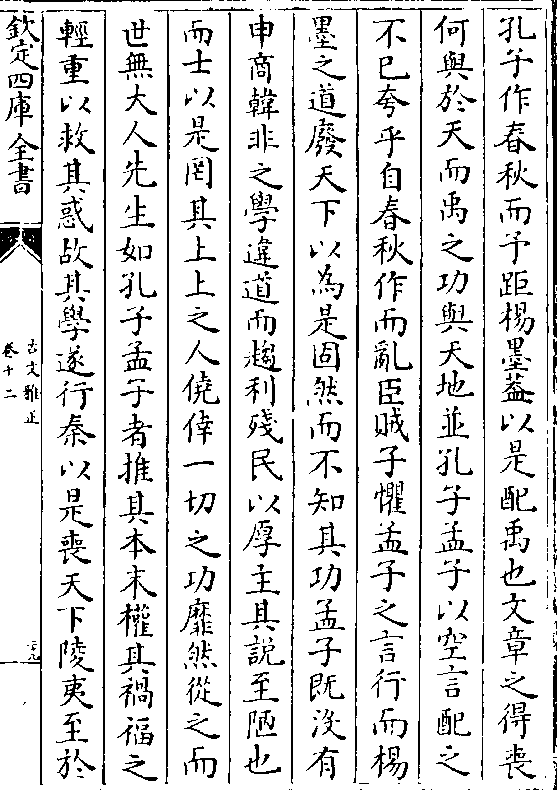 孔子作春秋而予距楊墨蓋以是配禹也文章之得喪
何與於天而禹之功與天地並孔子孟子以空言配之
不已夸乎自春秋作而亂臣賊子懼孟子之言行而楊
墨之道廢天下以為是固然而不知其功孟子既沒有
申商韓非之學違道而趨利殘民以厚主其說至陋也
而士以是罔其上上之人僥倖一切之功靡然從之而
世無大人先生如孔子孟子者推其本末權其禍福之
輕重以救其惑故其學遂行秦以是喪天下陵夷至於
欽定四庫全書
古文雅正
卷十二